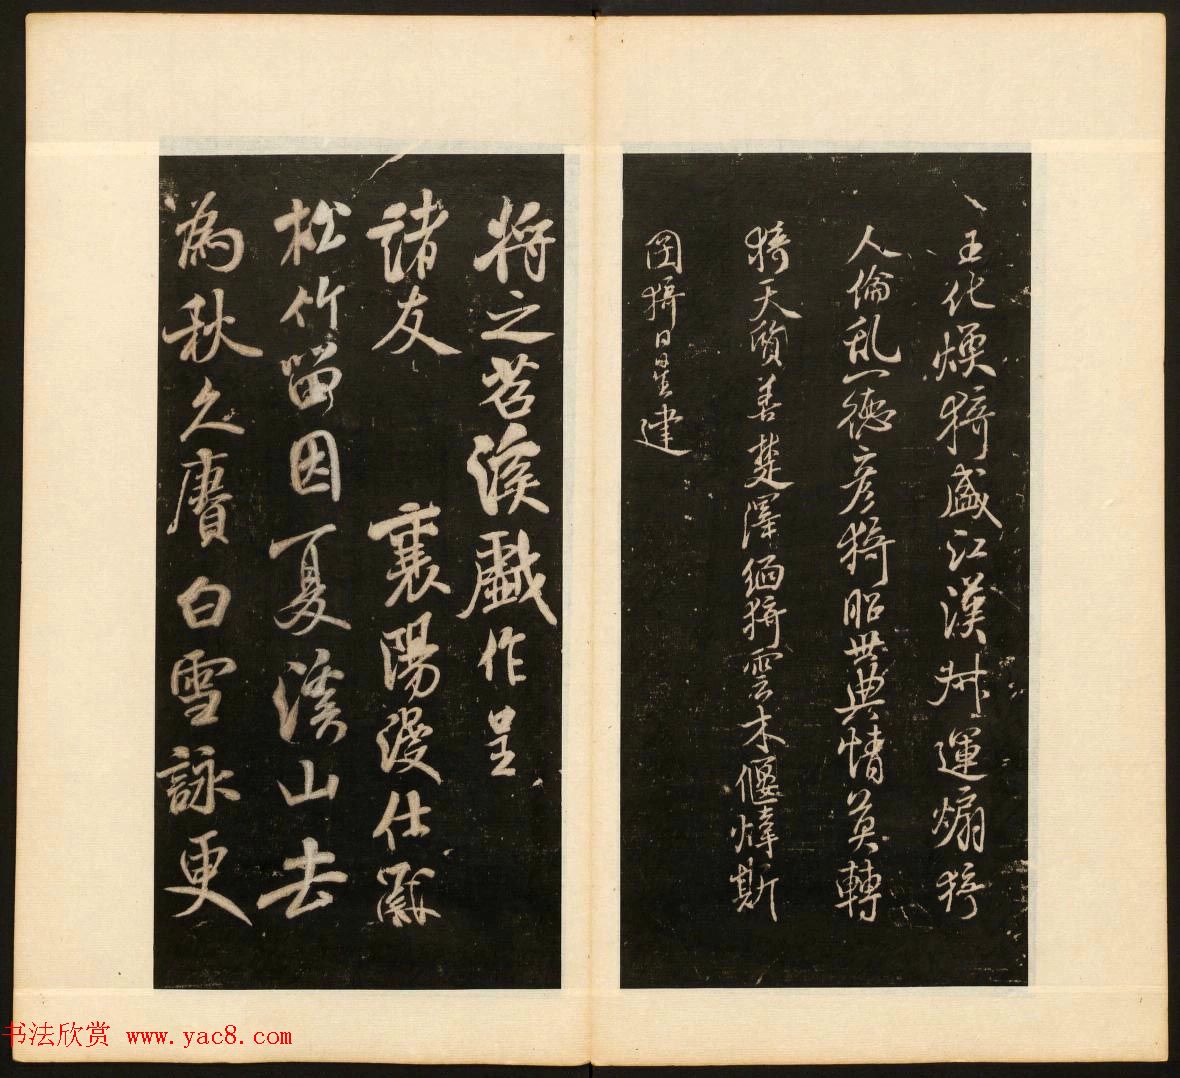 王化煥猗盛江漢舛運煽猗
人倫乱一德彦猗昭世典情莫轉
猗天質善楚澤緬猗雲木偃煒斯
罔猗日星建
將之苕溪戲作呈
諸友 襄陽漫仕黻
松竹留因夏溪山去
為秋久賡白雪詠更
书法欣赏 www.yac8.com